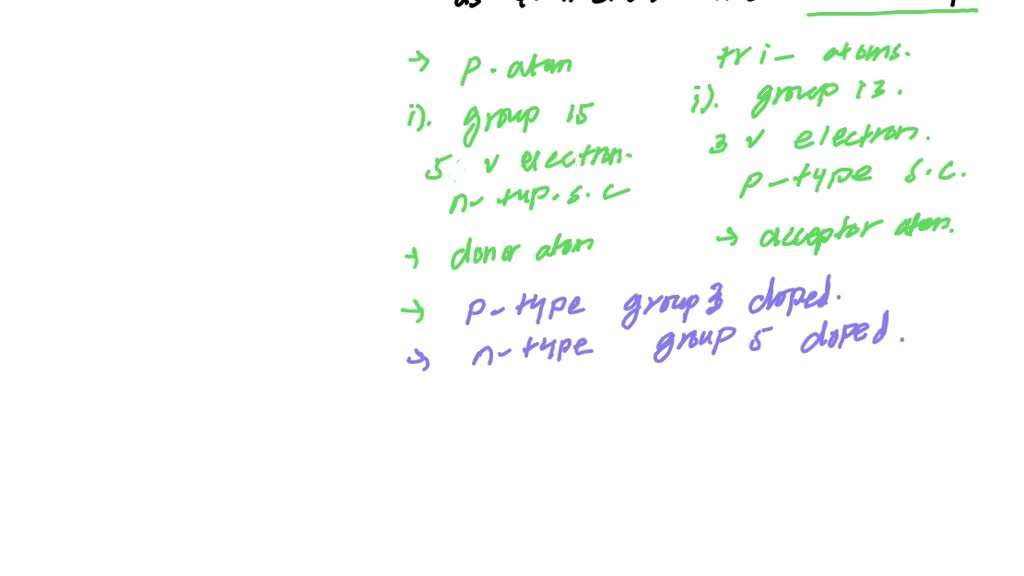 → p. atom
i). group 15
5 v electron.
n- typ. s. c
→ donor atom
tri- atoms.
i). group 13.
3 v electron.
p-type s.c.
→ acceptor atom.
→ p-type group 3 doped.
→ n-type group 5 doped.